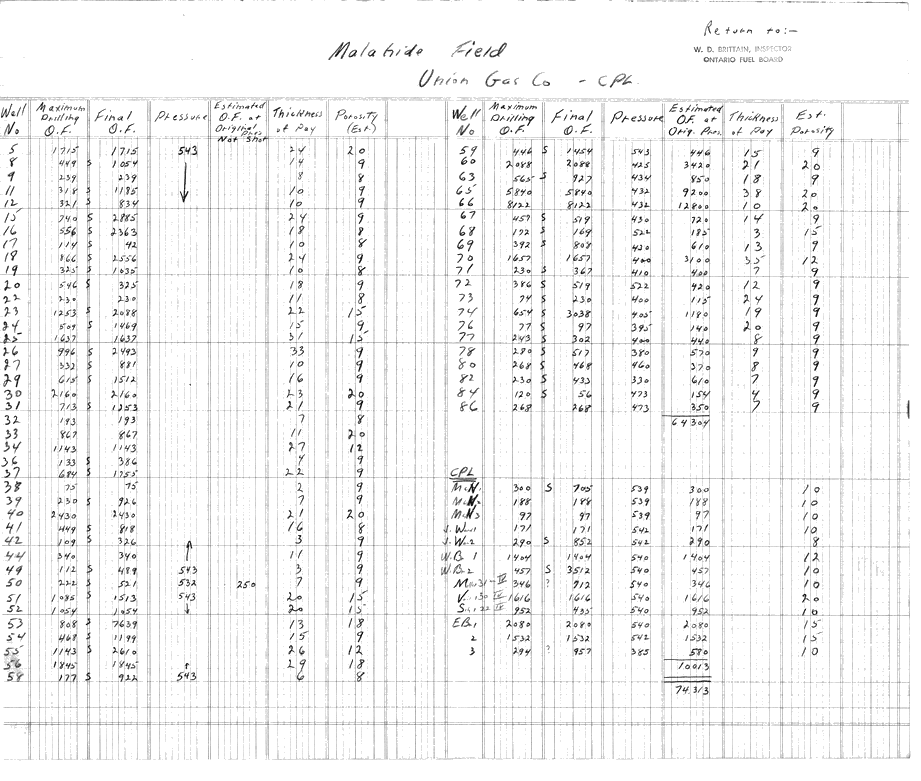 Return to:-
W. D. BRITTAIN, INSPECTOR
ONTARIO FUEL BOARD
Malahide Field
Union Gas Co - CPL.
Well No Maximum Drilling O.F. Final O.F. Pressure Estimated O.F. at Original Pres. Not Shot Thickness of Pay Porosity (Est)
5 1715 1715 543 24 20
8 449 S 1054 14 9
9 239 239 8 8
11 318 S 1185 10 9
12 321 S 834 10 9
15 740 S 2885 24 9
16 556 S 2363 18 8
17 114 S 42 10 8
18 866 S 2556 24 9
19 325 S 1035 10 8
20 546 S 325 18 9
22 230 230 11 8
23 1253 S 2088 22 15
24 509 S 1469 15 9
25 1637 1637 31 15
26 996 S 2493 33 9
27 332 S 881 10 9
29 615 S 1512 16 9
30 2160 2160 23 20
31 713 S 1253 21 9
32 193 193 7 8
33 867 867 11 20
34 1143 1143 27 12
36 133 S 386 4 9
37 684 S 1755 22 9
38 75 75 2 9
39 230 S 926 7 9
40 2430 2430 21 20
41 449 S 818 16 8
42 109 S 326 3 9
44 340 340 11 9
49 112 S 489 543 3 9
50 222 S 521 532 250 7 9
51 1085 S 1513 543 20 15
52 1054 1054 20 15
53 808 S 7639 13 18
54 468 S 1199 15 9
55 1143 S 2610 26 12
56 1845 1845 29 18
58 177 S 922 543 6 8
Well No Maximum Drilling O.F. Final O.F. Pressure Estimated O.F. at Orig. Pres. Thickness of Pay Est. Porosity
59 446 S 1454 543 446 15 9
60 2088 2088 425 3420 21 20
63 565 S 927 434 850 18 9
65 5840 5840 432 9200 38 20
66 8122 8122 432 12800 10 20
67 457 S 519 430 720 14 9
68 172 S 169 522 185 3 15
69 392 S 808 420 610 13 9
70 1657 1657 400 3100 35 12
71 230 S 367 410 400 7 9
72 386 S 519 522 420 12 9
73 74 S 230 400 115 24 9
74 654 S 3038 405 1180 19 9
76 77 S 97 395 140 20 9
77 243 S 302 400 440 8 9
78 280 S 517 380 570 9 9
80 268 S 468 460 370 8 9
82 230 S 433 330 610 7 9
84 120 S 56 473 154 4 9
86 268 268 473 350 7 9
64304
CPL
M.N. 300 S 705 539 300 10
M.N.2 188 188 539 188 10
M.N3 97 97 539 97 10
J.W.1 171 171 542 171 10
J.W.2 290 S 852 542 290 8
W.B 1 1404 1404 540 1404 12
W.B.2 457 S 3512 540 457 10
346 ? 912 540 346 10
1616 1616 540 1616 20
952 435 540 952 10
E.B.1 2080 2080 540 2080 15
2 1532 1532 542 1532 15
3 294 ? 957 385 580 10
10013
74,313